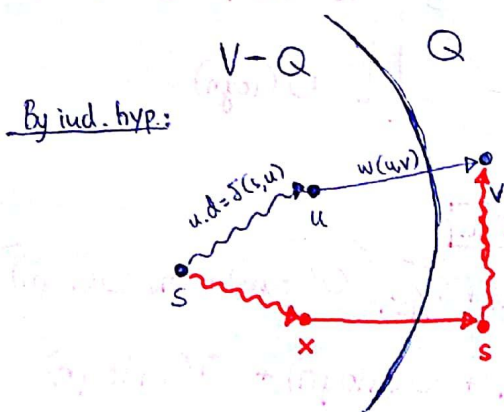 V-Q
Q
By ind. hyp.:
u.d=δ(s,u)
w(u,v)
u
v
S
x
s